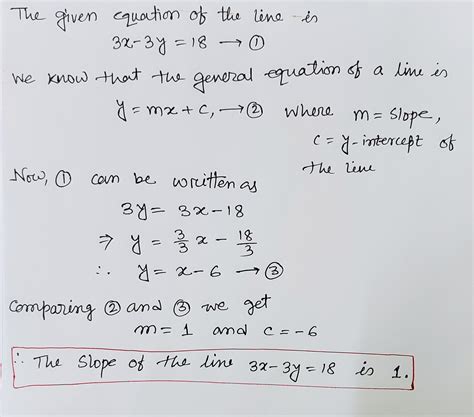 The given equation of the line is
3x-3y = 18 → ①
We know that the general equation of a line is
y = mx + c, → ② where m = slope,
c = y-intercept of
the line
Now, ① can be written as
3y = 3x - 18
⇒ y = 3/3 x - 18/3
∴ y = x - 6 → ③
Comparing ② and ③ we get
m = 1 and c = -6
∴ The slope of the line 3x-3y = 18 is 1.